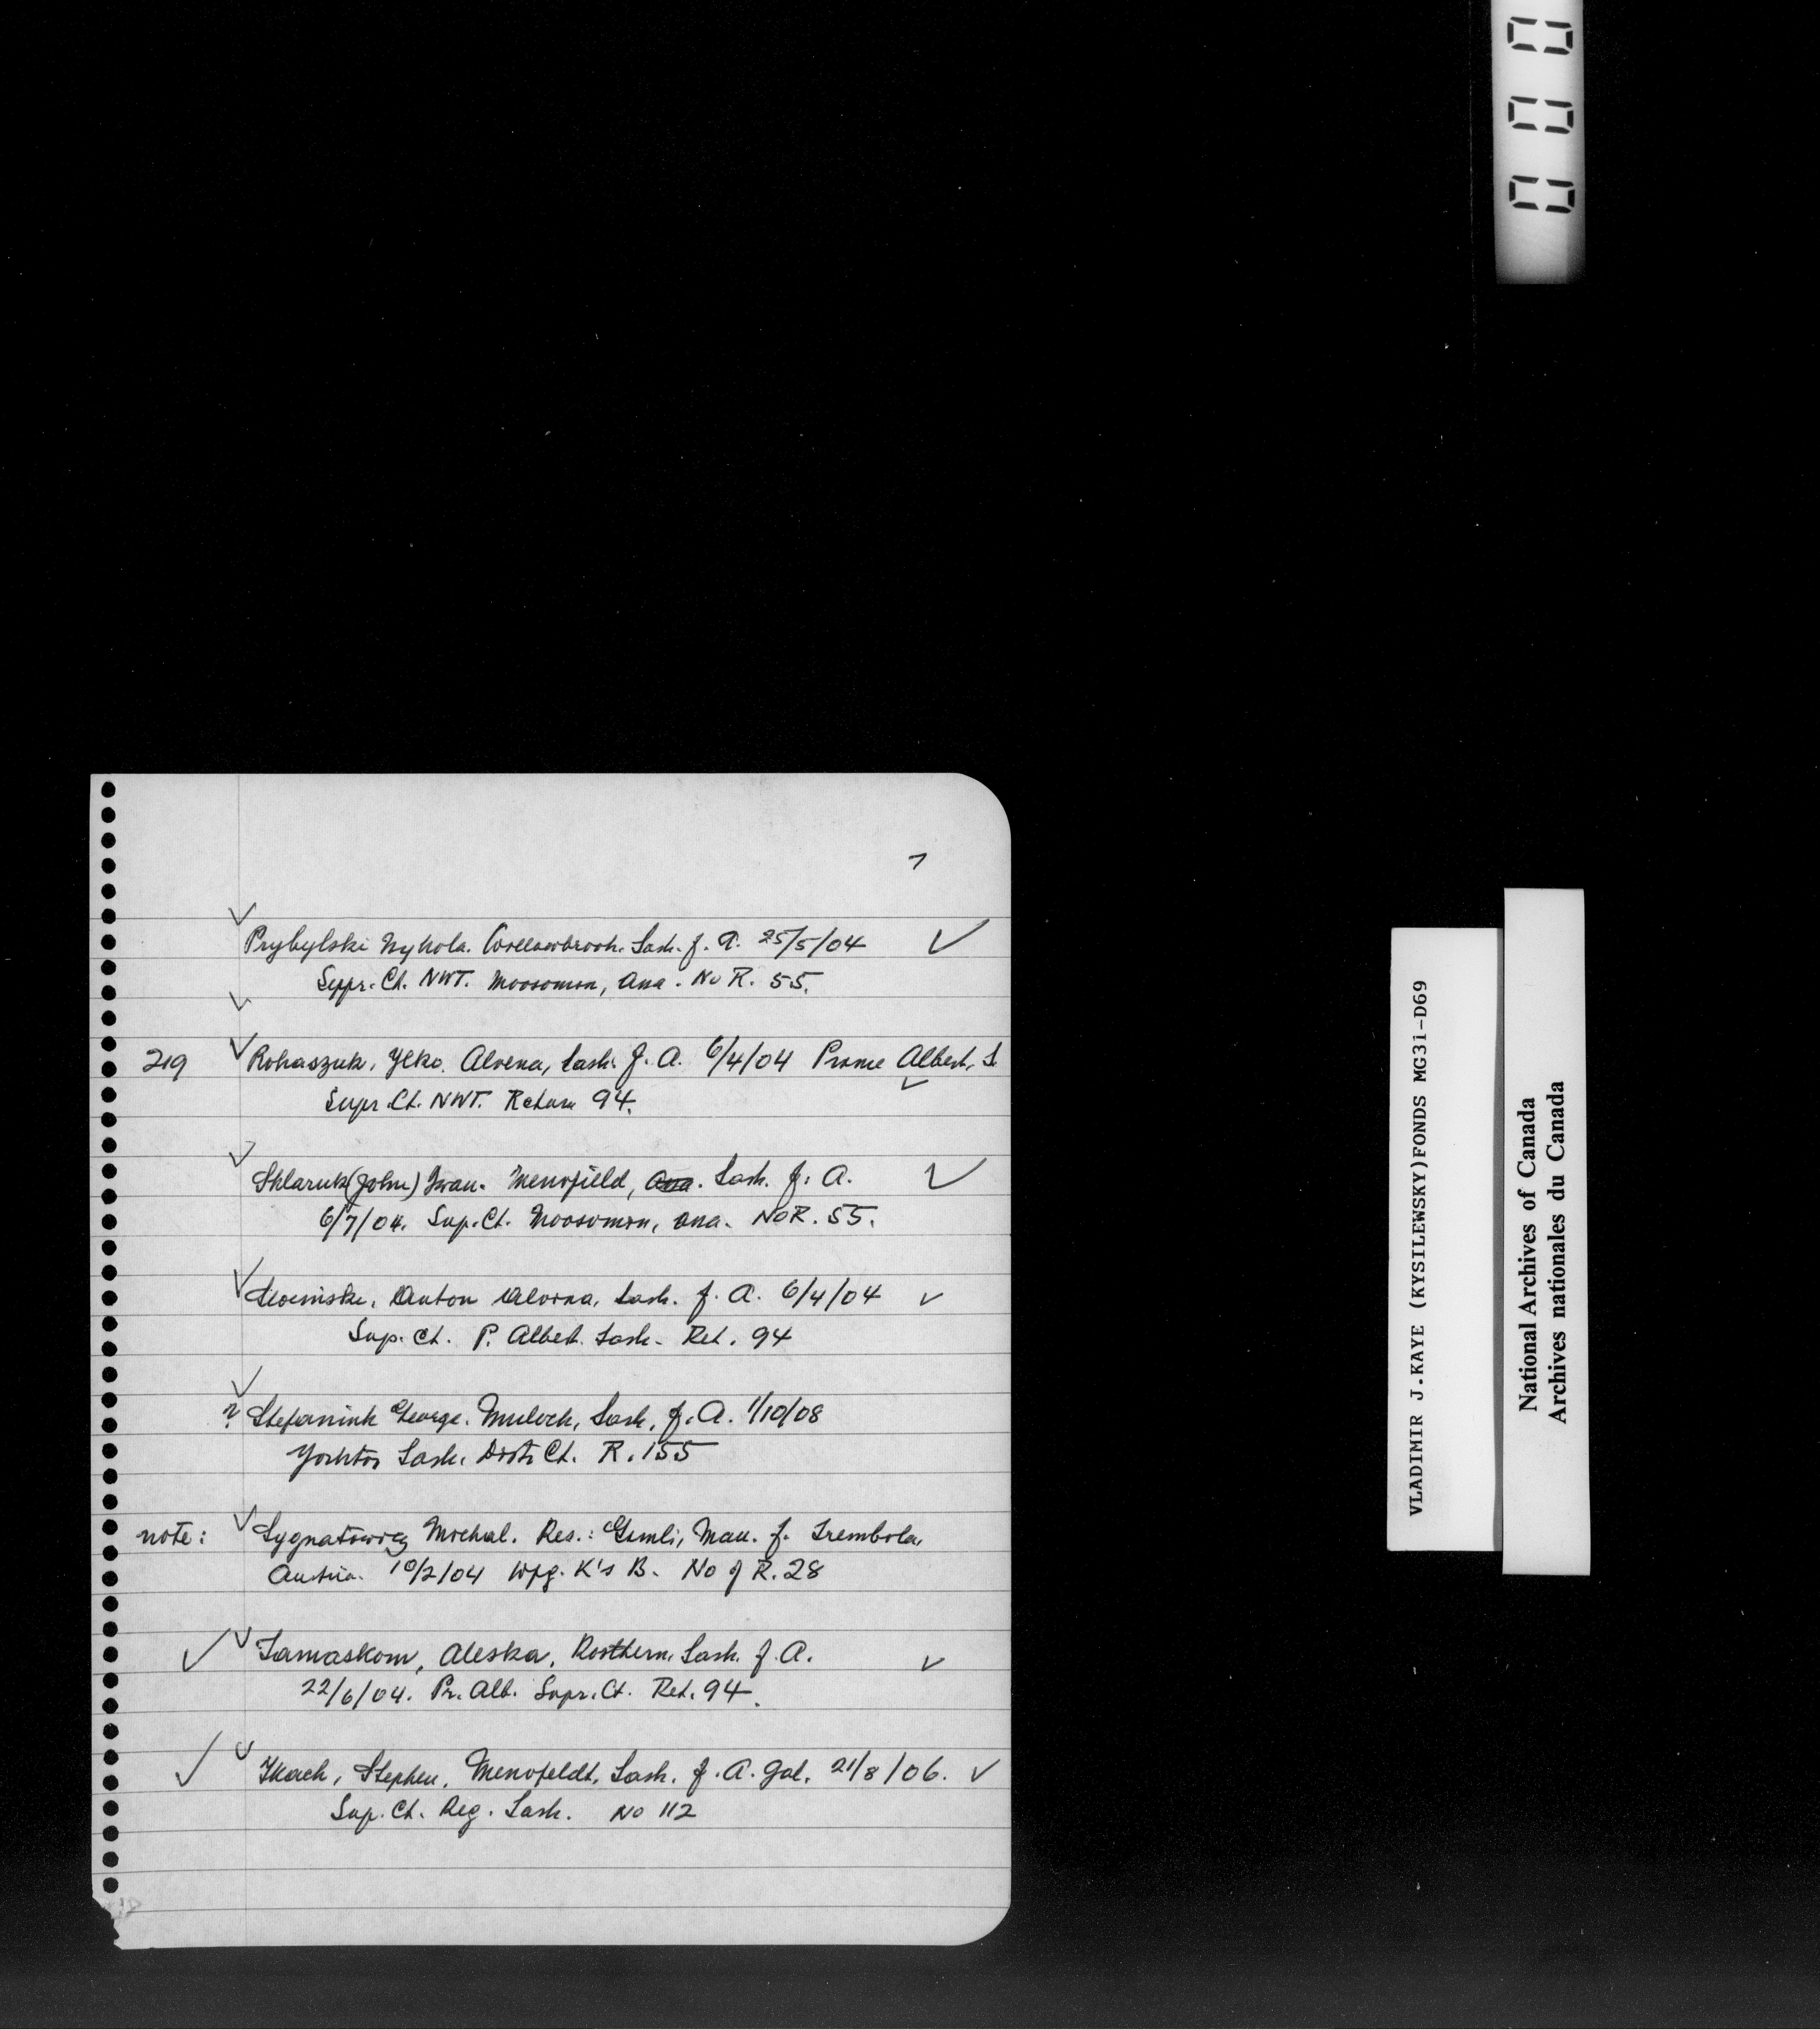 7
Prybylski Mykola. Willowbrook. Sask. f. A. 25/5/04
Supr. Ct. NWT. Moosomin, Assa. No R. 55.
219 Rohaszuk, Ilko. Alvena, Sask. f. A. 6/4/04 Prince Albert, S.
Supr. Ct. NWT. Return 94.
Shlaruk (John) Iwan. Menofield, Assa. Sask. f. A.
6/7/04. Sup. Ct. Moosomin, Assa. No R. 55.
Anton Alvena, Sask. f. A. 6/4/04
Sup. Ct. P. Albert. Sask. Ret. 94
? Stefaniuk George. Mulock, Sask, f. A. 1/10/08
Yorkton Sask. Distr Ct. R. 155
note: Sygnatowicz Michal. Res.: Gimli, Man. f. Trembola,
Austria. 10/2/04 Wpg. K's B. No of R. 28
Tamaskow, Aleska, Rosthern, Sask. f. A.
22/6/04. Pr. Alb. Supr. Ct. Ret. 94.
Tkach, Stephen, Menofeldt, Sask. f. A. Gal. 21/8/06.
Sup. Ct. Reg. Sask. No 112
000
VLADIMIR J.KAYE (KYSILEWSKY)FONDS MG31-D69
National Archives of Canada
Archives nationales du Canada